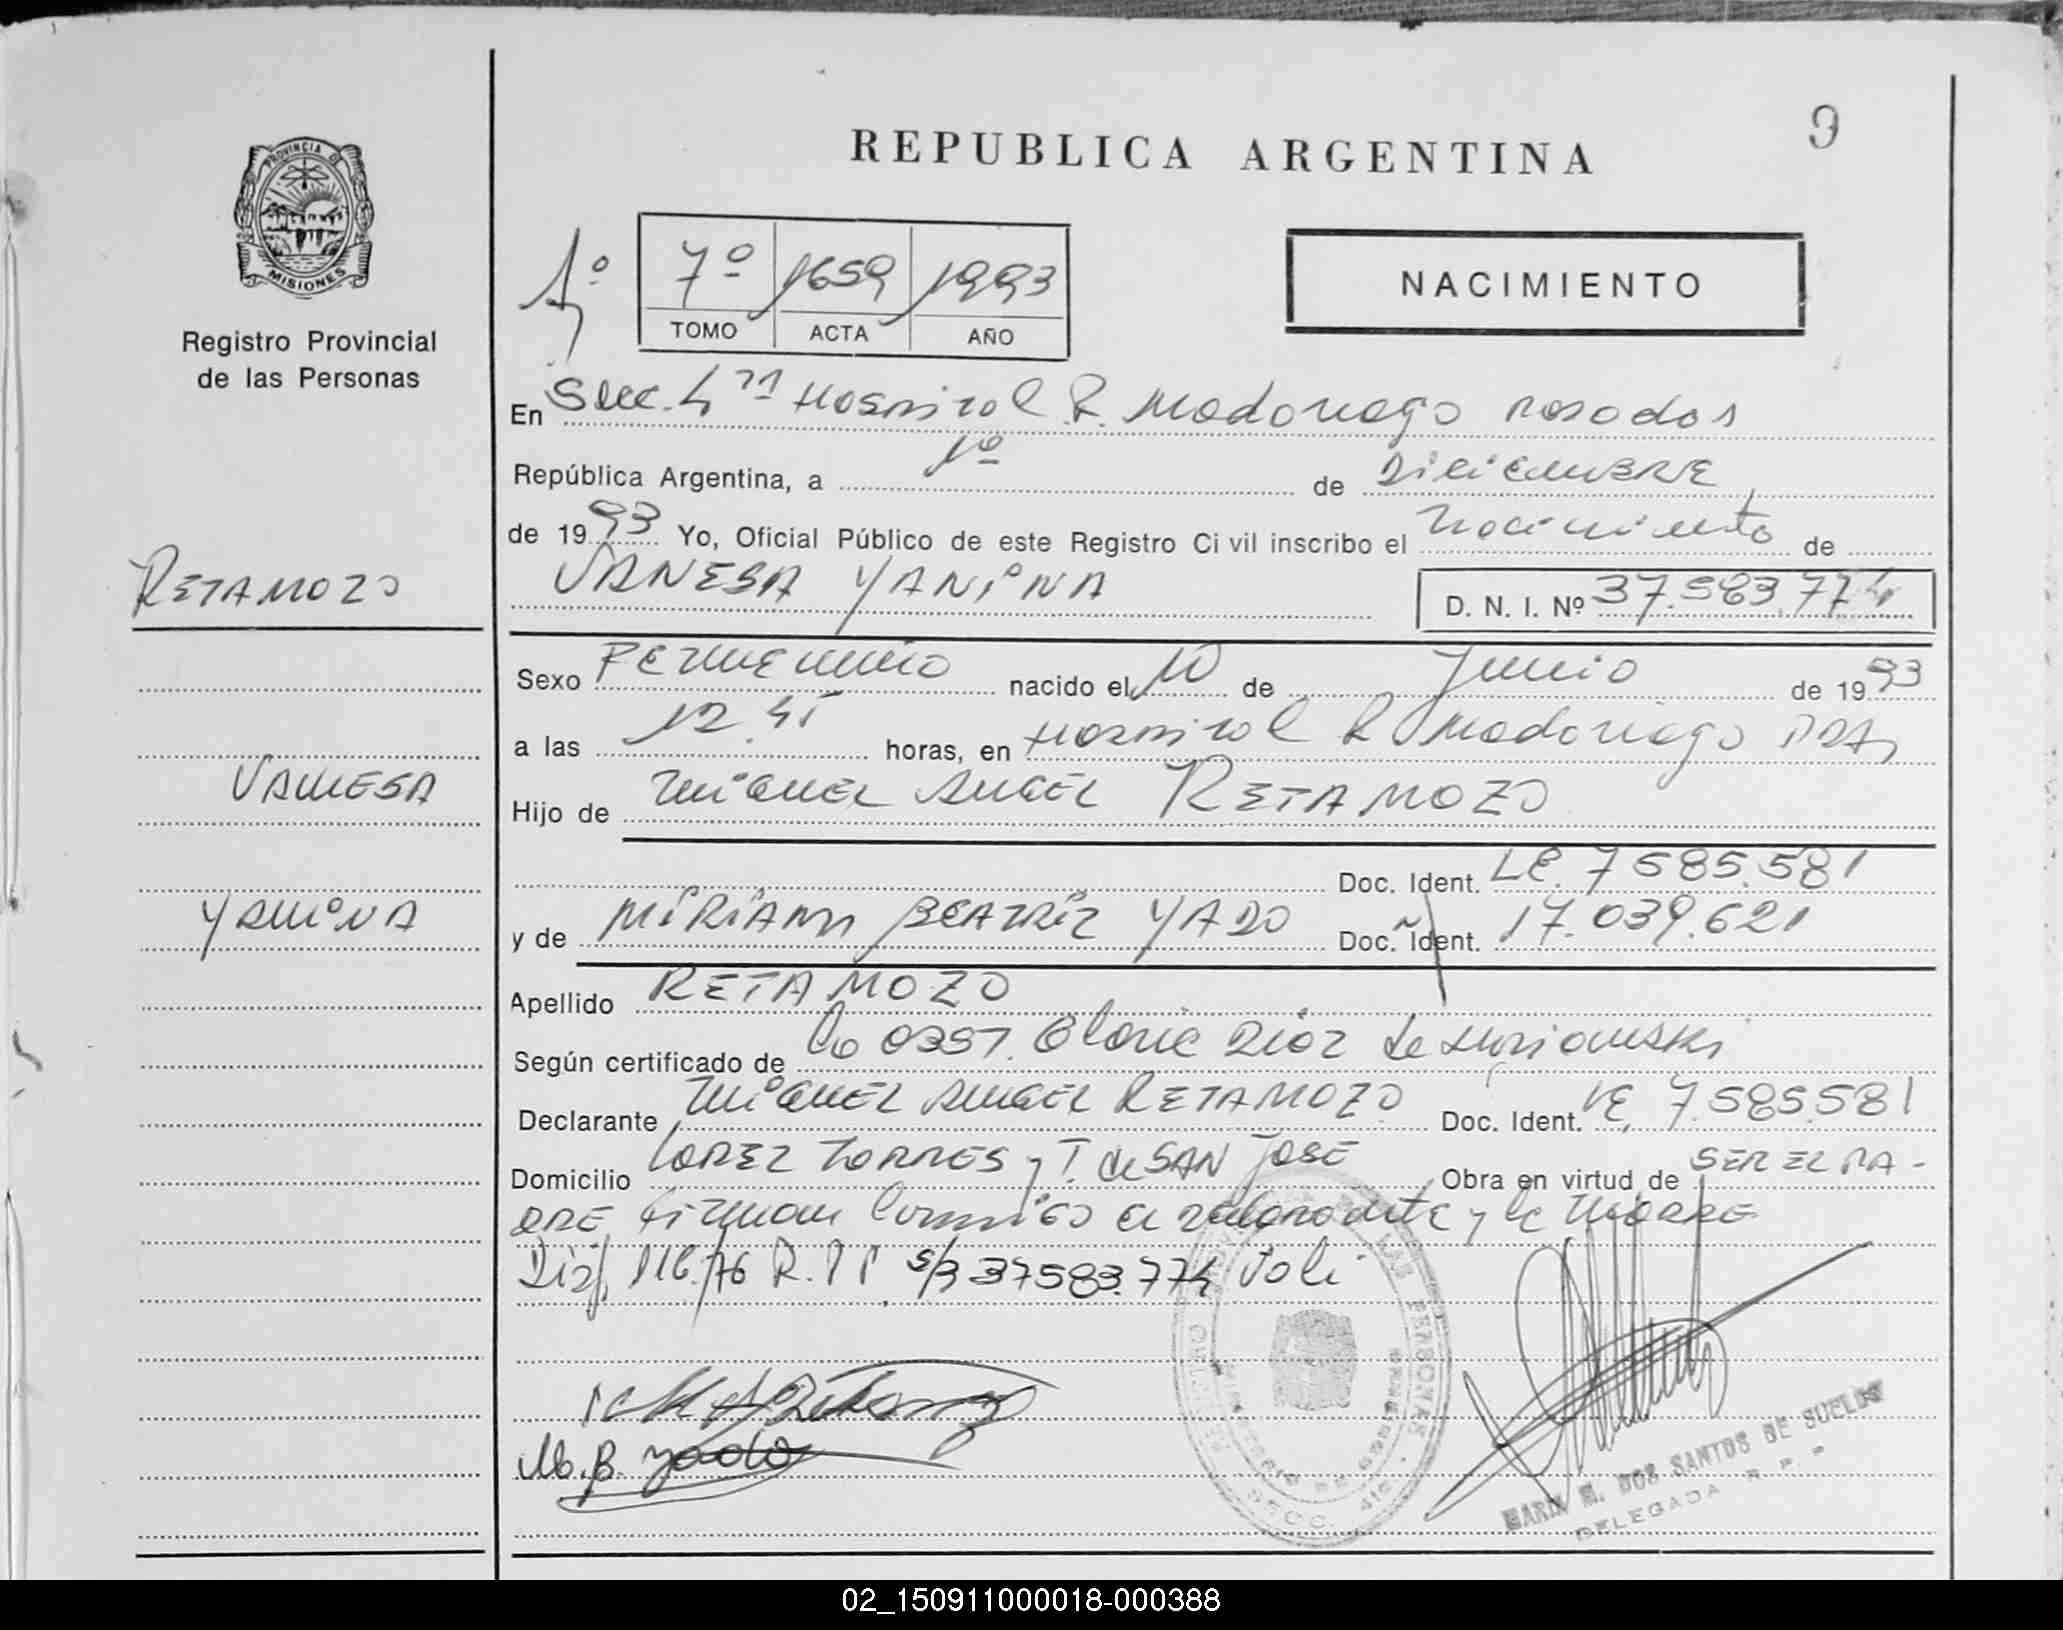 REPUBLICA ARGENTINA
9
PROVINCIA DE
MISIONES
Registro Provincial
de las Personas
1º
7º 1659 1993
TOMO ACTA AÑO
NACIMIENTO
En Secc. 4ª Hospital R. Madariaga Posadas
República Argentina, a 1º de Diciembre
de 1993 Yo, Oficial Público de este Registro Ci vil inscribo el Nacimiento de
RETAMOZO
VANESA YANINA D. N. I. Nº 37.583.774
Sexo Femenino nacido el 10 de Junio de 1993
a las 12.45 horas, en Hospital R Madariaga PDAS
VANESA
Hijo de MIGUEL ANGEL RETAMOZO
Doc. Ident. LE. 7585.581
YANINA
y de MIRIAM BEATRIZ YADO Doc. Ident. 17.039.621
Apellido RETAMOZO
Según certificado de 0357. Gloria Diaz de
Declarante MIGUEL ANGEL RETAMOZO Doc. Ident. LE, 7.585.581
Domicilio LOPEZ TORRES y T. de SAN JOSE Obra en virtud de SER EL PA-
DRE firman conmigo el declarante y la MADRE
Disp. 116/76 R.P.P s/3 37583.774 Vali
M.B. Yado
MARIA M. DOS SANTOS DE SUELDO
DELEGADA R P P
02_150911000018-000388